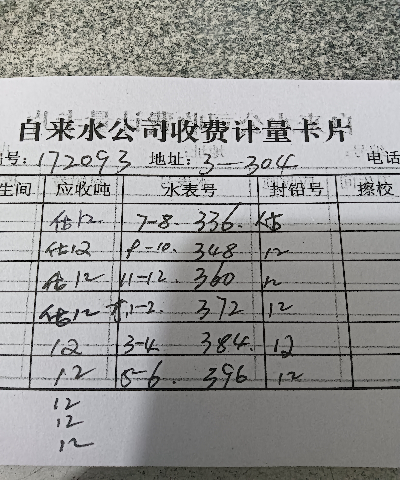 自来水公司收费计量卡片
号：172093 地址：3-304 电话
生间 应收吨 水表号 封铅号 擦校
估12. 7-8. 336. 估
估12 9-10. 348 12
估12 11-12. 360 12
估12 1-2. 372 12
12 3-4 384. 12
12 5-6. 396 12
12
12
12